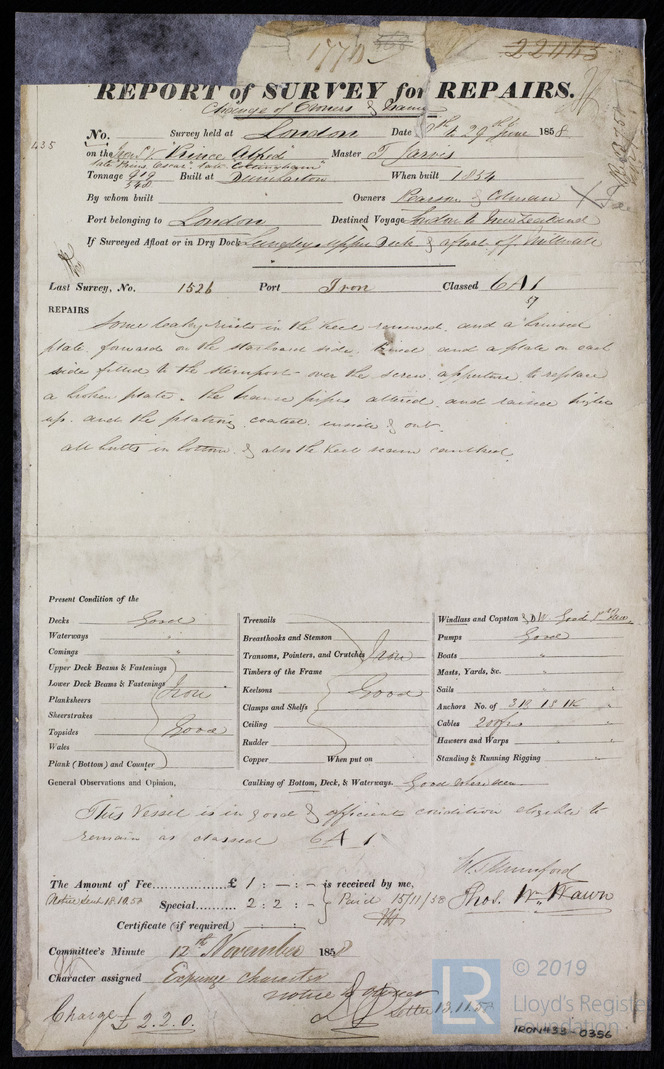 1770
22045
REPORT of SURVEY for REPAIRS.
Change of Owners & Name
No. Survey held at London Date 29th June 1858
435
on the Iron S V Prince Alfred Master T Jarvis
Tonnage 919 Built at Dumbarton When built 1854
By whom built Owners Pearson & Colman
Port belonging to London Destined Voyage London to New Zealand
If Surveyed Afloat or in Dry Dock Langley's Upper Dock & afloat off Millwall
Last Survey, No. 1526 Port Iron Classed 6 A 1
57
REPAIRS
Some leaky rivets in the keel renewed, and a bruised
plate forward on the starboard side and a plate on each
side fitted to the sternpost over the screw apperture to replace
a broken plate. the pipes altered and raised higher
up. and the plating coated inside & out.
all butts in bottom & also the keel seam caulked.
Present Condition of the
Decks Good
Waterways "
Comings "
Upper Deck Beams & Fastenings
Lower Deck Beams & Fastenings Iron
Planksheers
Sheerstrakes
Topsides Good
Wales
Plank (Bottom) and Counter
Treenails
Breasthooks and Stemson
Transoms, Pointers, and Crutches Iron
Timbers of the Frame
Keelsons Good
Clamps and Shelfs
Ceiling
Rudder
Copper When put on
Windlass and Capstan Good
Pumps Good
Boats "
Masts, Yards, &c. "
Sails "
Anchors No. of 3 B 1 S 1 K "
Cables 200 fs "
Hawsers and Warps "
Standing & Running Rigging "
General Observations and Opinion,
Caulking of Bottom, Deck, & Waterways. Good where seen
This Vessel is in good & efficient condition eligible to
remain as classed 6 A 1
W. Mumford
The Amount of Fee £ 1 : — : - is received by me,
Notice sent 18.10.58 Special 2 : 2 : - Paid 15/11/58 Thos. Wm Wawn
Certificate (if required) : :
Committee's Minute 12th November 1858
Character assigned Expunge character
Letter 13.11.58
Charge £ 2.2.0.
LR
© 2019
Lloyd's Register
Foundation
IRON433-0356